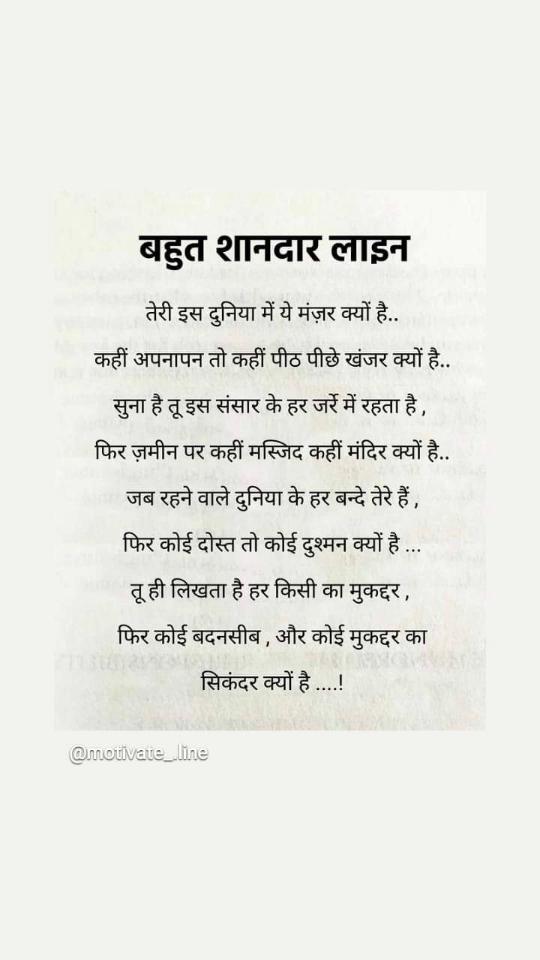 बहुत शानदार लाइन
तेरी इस दुनिया में ये मंज़र क्यों है..
कहीं अपनापन तो कहीं पीठ पीछे खंजर क्यों है..
सुना है तू इस संसार के हर जर्रे में रहता है ,
फिर ज़मीन पर कहीं मस्जिद कहीं मंदिर क्यों है..
जब रहने वाले दुनिया के हर बन्दे तेरे हैं ,
फिर कोई दोस्त तो कोई दुश्मन क्यों है ...
तू ही लिखता है हर किसी का मुकद्दर ,
फिर कोई बदनसीब , और कोई मुकद्दर का
सिकंदर क्यों है ....!
@motivate_.line